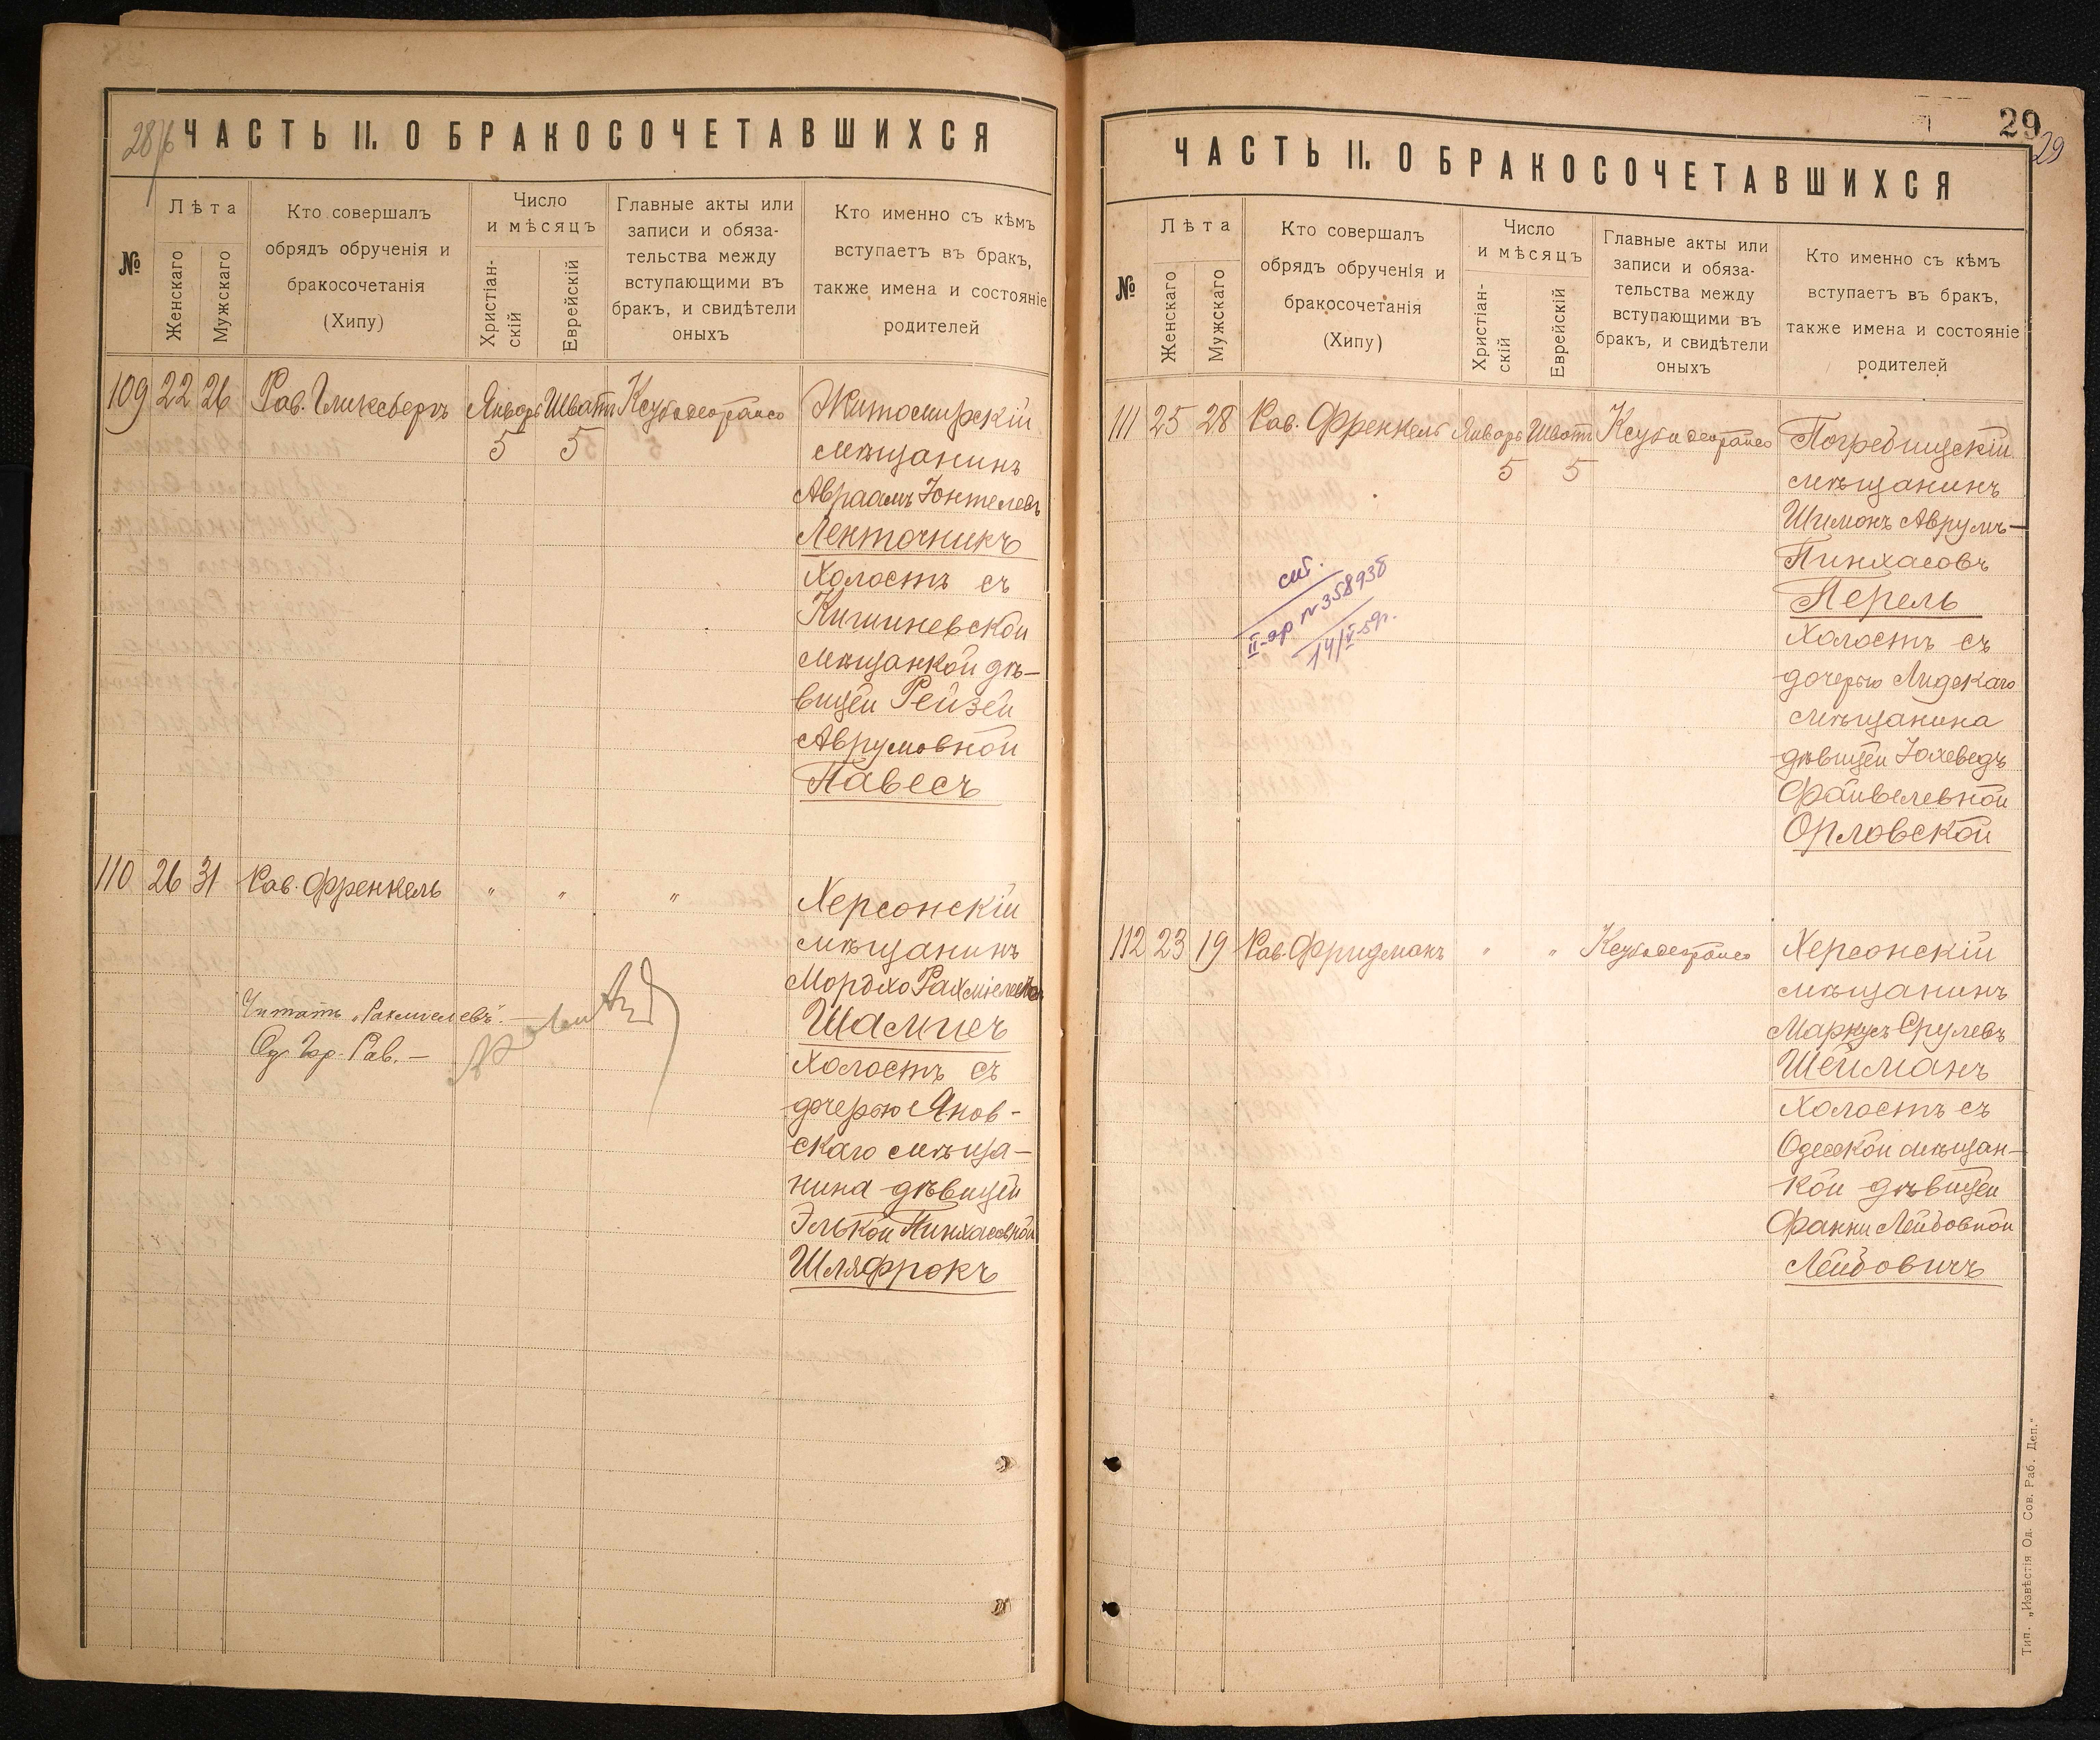 28/6
ЧАСТЬ II. О БРАКОСОЧЕТАВШИХСЯ
№
Лѣта
Женскаго
Мужскаго
Кто совершалъ
обрядъ обрученія и
бракосочетанія
(Хипу)
Число
и мѣсяцъ
Христіан-
скій
Еврейскій
Главные акты или
записи и обяза-
тельства между
вступающими въ
бракъ, и свидѣтели
оныхъ
Кто именно съ кѣмъ
вступаетъ въ бракъ,
также имена и состояніе
родителей
109 22 26 Рав. Гликсбергъ Январь Шватъ
5 5
Житомирскій
мѣщанинъ
Авраамъ Іонтелевъ
Ленточникъ
Холостъ съ
Кишиневской
мѣщанкой дѣ-
вицей Рейзей
Аврумовной
Павесъ
110 26 31 Рав. Френкель " " "
Херсонскій
мѣщанинъ
Мордхо Рахміелевъ
Шампеч
Холостъ съ
дочерью Янов-
скаго мѣща-
нина дѣвицей
Элькой Пинхасовной
Шляфрокъ
Читать „Рахмиелевъ". —
Од. Гор. Рав. —
29
29
ЧАСТЬ II. О БРАКОСОЧЕТАВШИХСЯ
№
Лѣта
Женскаго
Мужскаго
Кто совершалъ
обрядъ обрученія и
бракосочетанія
(Хипу)
Число
и мѣсяцъ
Христіан-
скій
Еврейскій
Главные акты или
записи и обяза-
тельства между
вступающими въ
бракъ, и свидѣтели
оныхъ
Кто именно съ кѣмъ
вступаетъ въ бракъ,
также имена и состояніе
родителей
111 25 28 Рав. Френкель Январь Шватъ
5 5
Погребищскій
мѣщанинъ
Шимонъ Аврумъ-
Пинхасовъ
Перель
Холостъ съ
дочерью Лидскаго
мѣщанина
дѣвицей Іохеведъ
Файвелевной
Орловской
II-ар № 358936
14/V-59г.
112 23 19 Рав. Фридманъ " "
Херсонскій
мѣщанинъ
Маркусъ Срулевъ
Шейманъ
Холостъ съ
Одесской мѣщан-
кой дѣвицей
Фанни Лейбовной
Лейбовичъ
Тип. „Извѣстія Од. Сов. Раб. Деп."